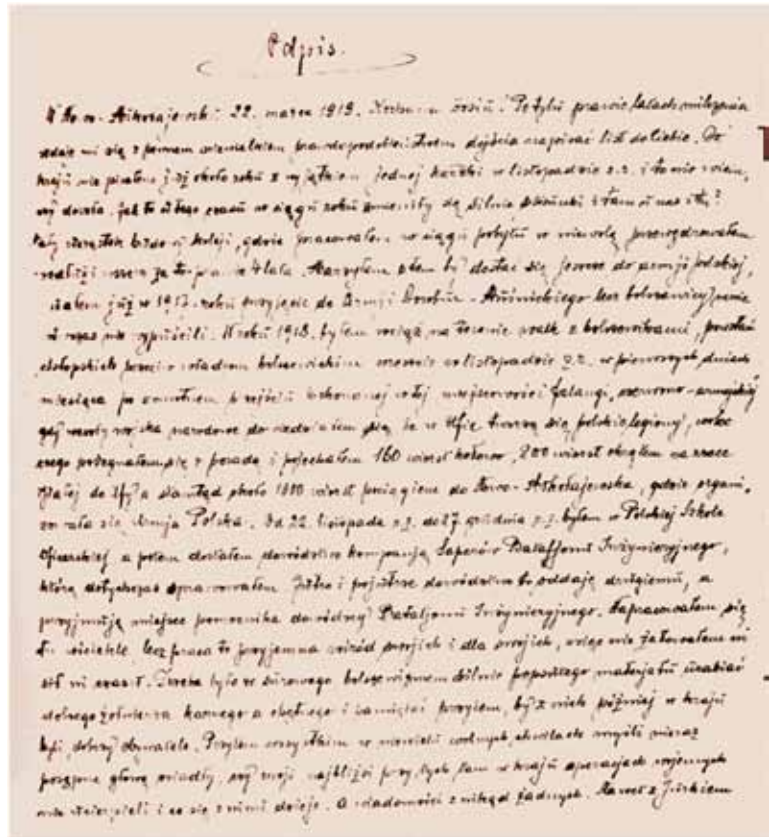 Odpis.
Nowo-Nikołajewsk 22. marca 1919. Kochana Zosiu! Po tylu prawie latach milczenia
zdaje mi się z pewnem prawdopodobieństwem dojścia napisać list do Ciebie. Do
kraju nie pisałem już około roku z wyjątkiem jednej kartki w listopadzie z.r. i to nie wiem,
czy doszła. Jak to u tego czasu w ciągu roku zmieniły się silnie stosunki i tam u nas i tu?
Cały kolei, gdzie pracowałem w ciągu pobytu w niewoli,
za to prawie 4 lata. Marzyłem by dostać się jeszcze do armji polskiej,
już w 1917. roku przyjęcie do Armji Dowbór-Muśnickiego lecz bolszewicy
nie wypuścili. W roku 1918. byłem wciąż na terenie walk z bolszewikami, powstań
chłopskich przeciw władzom bolszewickim w listopadzie z.r. w pierwszych dniach
miesiąca po tej miejscowości falangi,
gdy weszły wojska narodowe dowiedziałem się, że w Ufie tworzą się polskie legiony, wobec
czego pożegnałem się z posadą i pojechałem 160 wiorst kołowo, 200 wiorst okrętem na rzece
Białej do Ufy a stamtąd około 1800 wiorst pociągiem do Nowo-Nikołajewska, gdzie organi-
zowała się Armja Polska. Od 22. listopada z.r. do 27 grudnia z.r. byłem w Polskiej Szkole
Oficerskiej a potem dostałem dowództwo kompanją Saperów Bataljonu Inżynieryjnego,
którą dotychczas sprawowałem. Jutro i pojutrze dowództwo to oddaję drugiemu, a
przyjmuję miejsce pomocnika dowódcy Bataljonu Inżynieryjnego. Napracowałem się
tu wiele lecz praca to przyjemna wśród swojich i dla swojich, więc nie żałowałem ni
sił ni czasu. Trzeba było ze surowego bolszewizmem silnie popsutego materjału urabiać
dobrego żołnierza karnego a chętnego i pamiętać przytem, by z nich później w kraju
byli dobrzy obywatele. Przytem wszystkim w niewielu wolnych chwilach myśli nieraz
głowę, czy moji najbliżsi przy tych tam w kraju operacjach wojennych
nie ucierpieli i co się z nimi dzieje. A wiadomości z nikąd żadnych. z Jurkiem